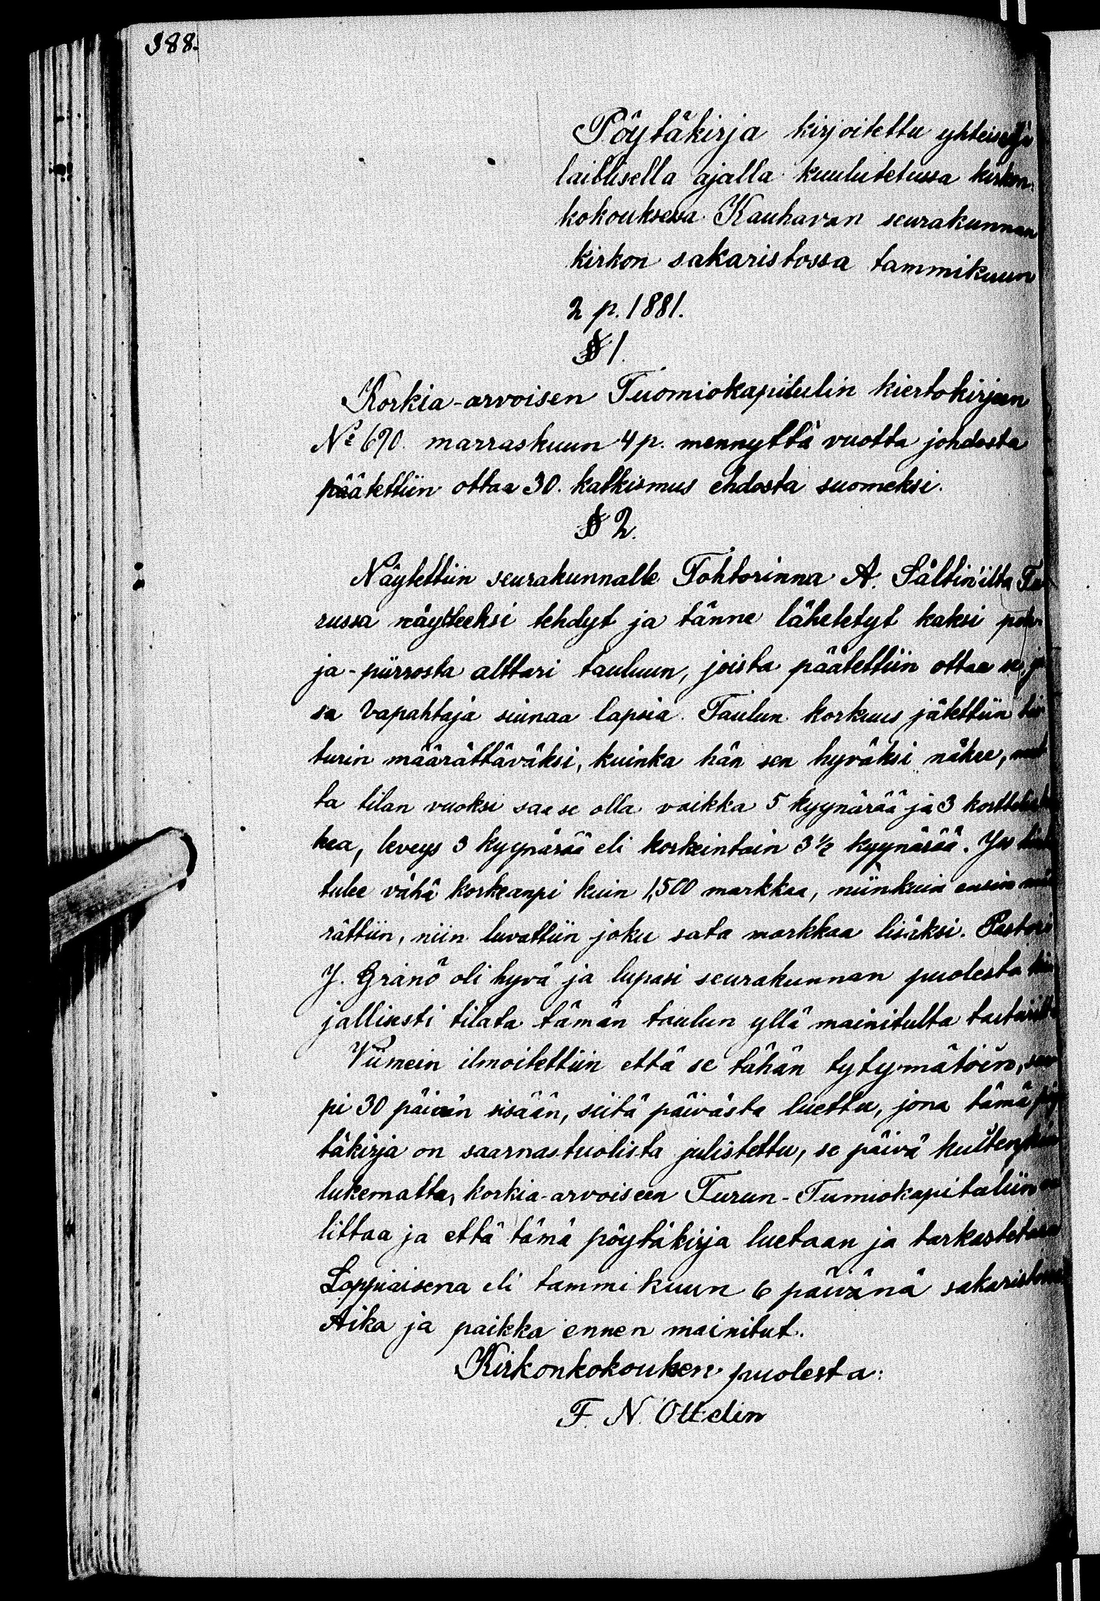 388.
Pöytäkirja kirjoitettu yhteisesti
laillisella ajalla kuulutetussa kirkon-
kokouksessa Kauhavan seurakunnan
kirkon sakaristossa tammikuun
2 p. 1881.
§ 1.
Korkia-arvoisen Tuomiokapitulin kiertokirjeen
No 690. marraskuun 4 p. mennyttä vuotta johdosta
päätettiin ottaa 30. katkismus ehdosta suomeksi.
§ 2.
Näytettiin seurakunnalle Tohtorinna A. Såltin'ilta Tu-
russa näytteeksi tehdyt ja tänne lähetetyt kaksi poh-
ja-piirrosta alttari tauluun, joista päätettiin ottaa se, jo
sa Vapahtaja siunaa lapsia. Taulun korkuus jätettiin
turin määrättäväksi, kuinka hän sen hyväksi näkee, mut
ta tilan vuoksi saa se olla vaikka 5 kyynärää ja 3 korttelia
kea, leveys 3 kyynärää eli korkeintain 3 ½ kyynärää. Jos hinta
tulee vähä korkeanpi kuin 1,500 markkaa, niinkuin ensin mää
rättiin, niin luvattiin joku sata markkaa lisäksi. Pastori
J. Granö oli hyvä ja lupasi seurakunnan puolesta kir
jallisesti tilata tämän taulun yllä mainitulta
Viimein ilmoitettiin että se tähän tytymätöin, saa
pi 30 päivän sisään, siitä päivästä luettu, jona tämä pöy
täkirja on saarnastuolista julistettu, se päivä kuitenkin
lukematta, korkia-arvoiseen Turun-Tumiokapitaliin va
littaa ja että tämä pöytäkirja luetaan ja tarkastetaan
Loppiaisena eli tammikuun 6 päivänä sakaristossa
Aika ja paikka ennen mainitut.
Kirkonkokouksen puolesta:
F. N. Ottelin